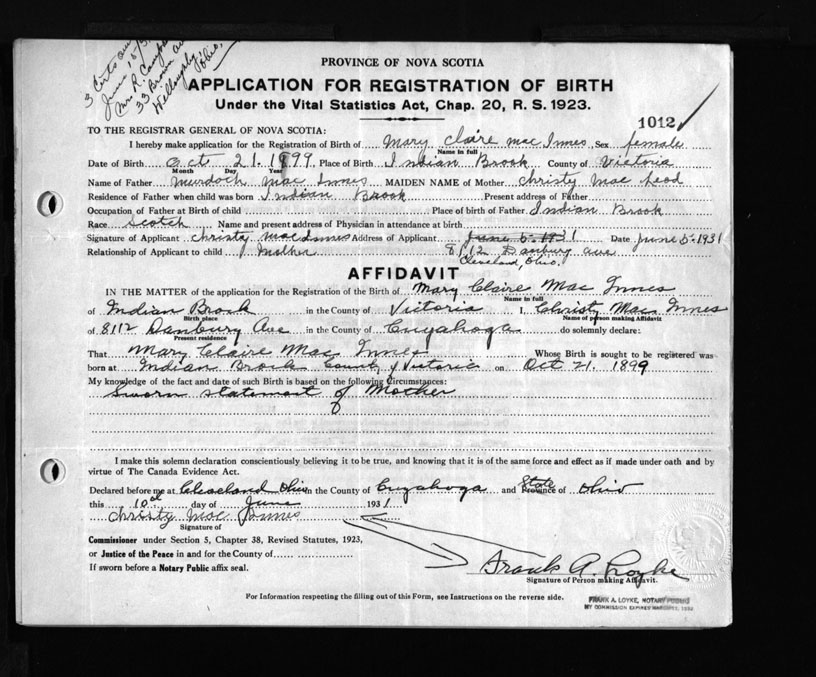 3 Certs
June 15/3
Mrs R. Campbell
33 Brown Ave
Willoughby
Ohio,
PROVINCE OF NOVA SCOTIA
APPLICATION FOR REGISTRATION OF BIRTH
Under the Vital Statistics Act, Chap. 20, R. S. 1923.
1012
TO THE REGISTRAR GENERAL OF NOVA SCOTIA:
I hereby make application for the Registration of Birth of Mary Claire Mac Innes Sex female
Name in full
Date of Birth Oct 21. 1899 Place of Birth Indian Brook County of Victoria
Month Day Year
Name of Father Murdoch Mac Innes MAIDEN NAME of Mother Christy Mac Leod
Residence of Father when child was born Indian Brook Present address of Father
Occupation of Father at Birth of child Place of birth of Father Indian Brook
Race Scotch Name and present address of Physician in attendance at birth
Signature of Applicant Christy MacInnes Address of Applicant June 5. 1931 Date June 5. 1931
Relationship of Applicant to child Mother 8112 Danbury Ave
Cleveland, Ohio.
AFFIDAVIT
IN THE MATTER of the application for the Registration of the Birth of Mary Claire Mac Innes
Name in full
of Indian Brook in the County of Victoria I, Christy Mac Innes
Birth place Name of person making Affidavit
of 8112 Danbury Ave in the County of Cuyahoga do solemnly declare:
Present residence
That Mary Claire Mac Innes Whose Birth is sought to be registered was
born at Indian Brook County of Victoria on Oct 21. 1899
My knowledge of the fact and date of such Birth is based on the following Circumstances:
Sworn statement of Mother
I make this solemn declaration conscientiously believing it to be true, and knowing that it is of the same force and effect as if made under oath and by
virtue of The Canada Evidence Act.
Declared before me at Cleveland Ohio in the County of Cuyahoga and State Province of Ohio
this 10 day of June 1931
Christy Mac Innes
Signature of
Commissioner under Section 5, Chapter 38, Revised Statutes, 1923,
or Justice of the Peace in and for the County of
If sworn before a Notary Public affix seal.
Frank A. Loyke
Signature of Person making Affidavit.
For Information respecting the filling out of this Form, see Instructions on the reverse side.
FRANK A. LOYKE, NOTARY PUBLIC
MY COMMISSION EXPIRES